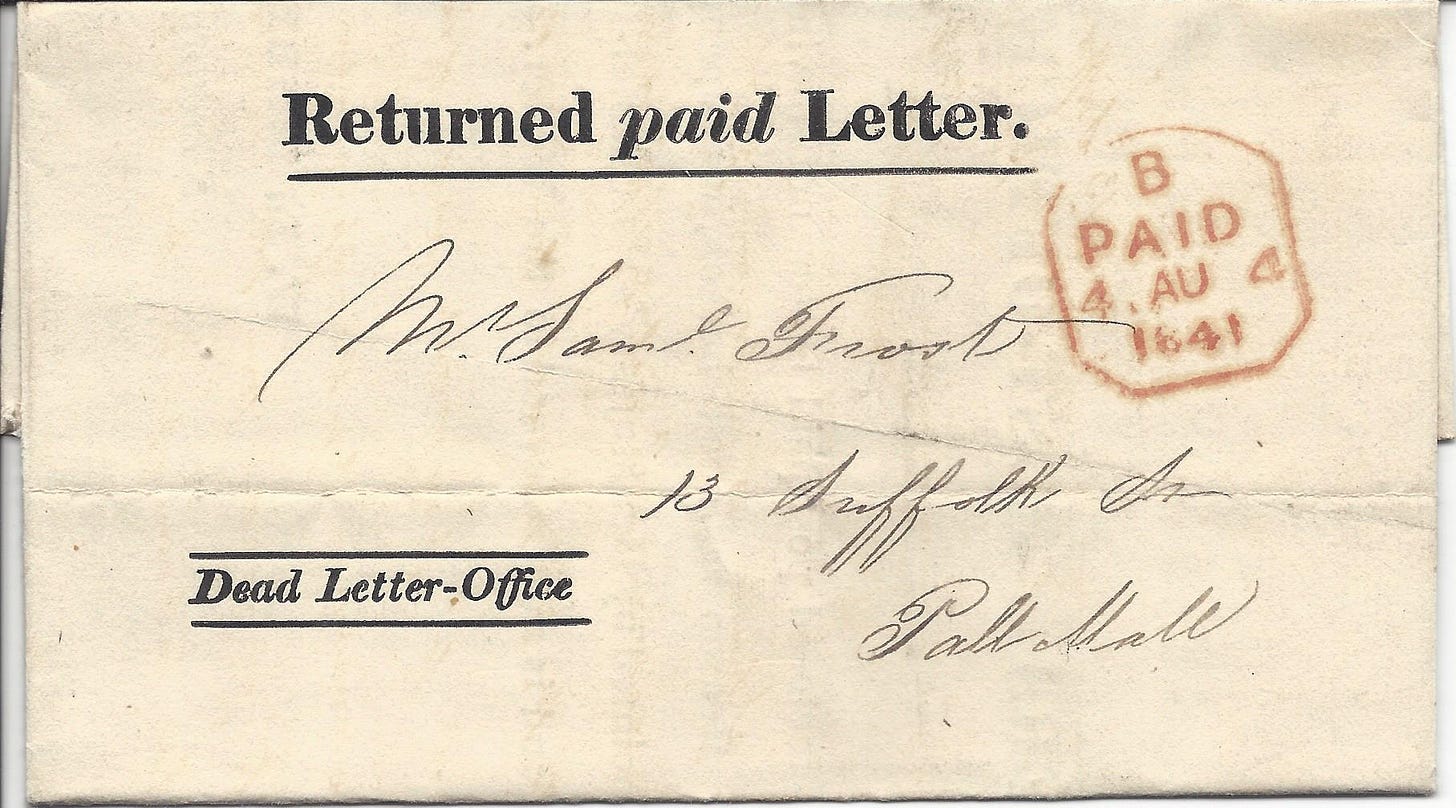 Returned paid Letter.
B
PAID
4. AU 4
1841
Mr. Saml. Frost
13 Suffolk St
Pall Mall
Dead Letter-Office